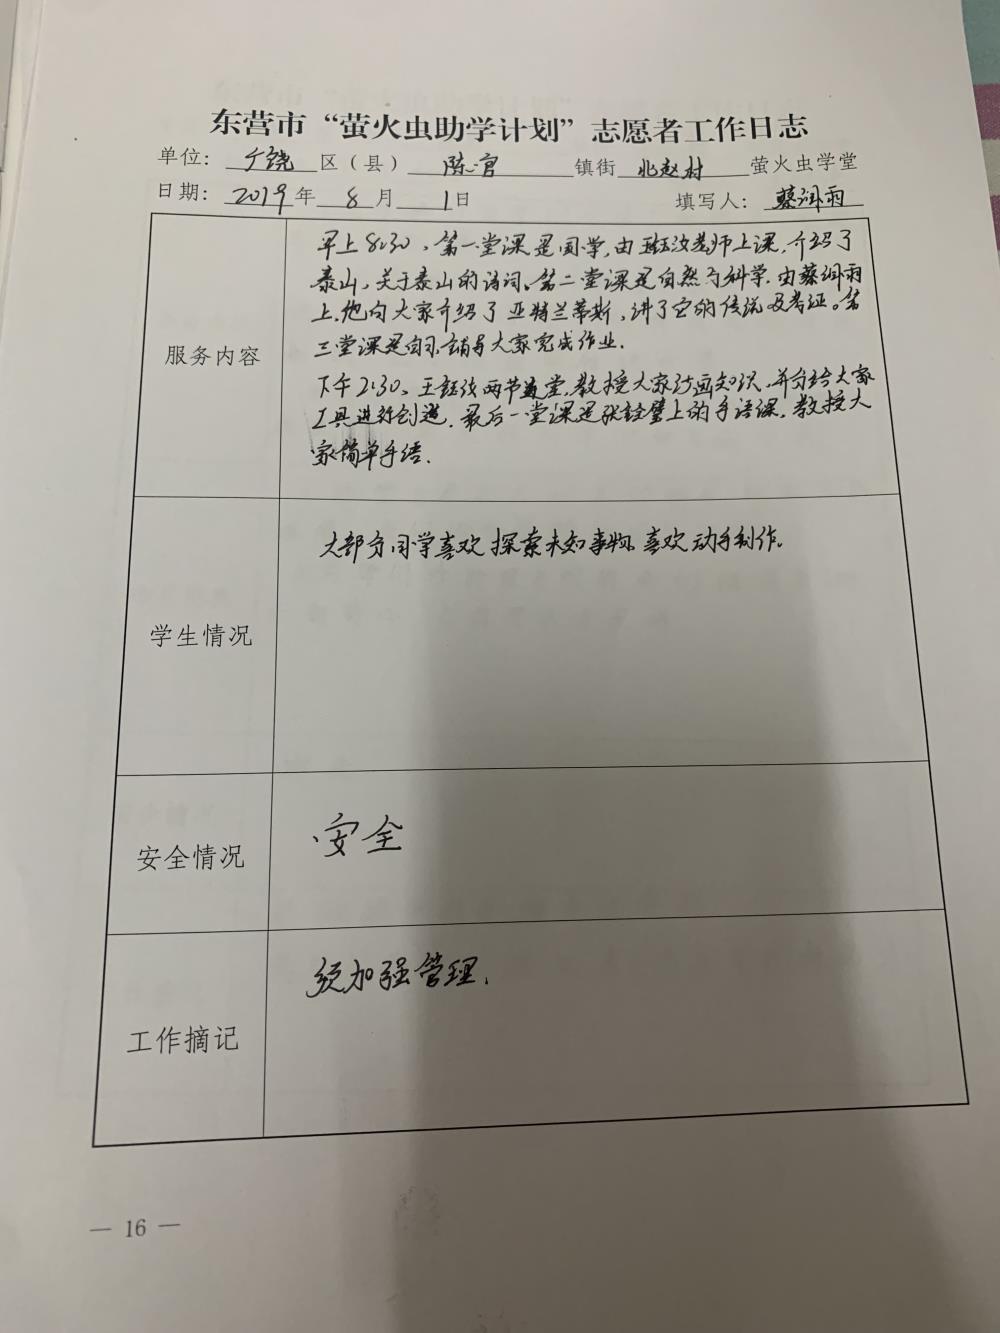 东营市“萤火虫助学计划”志愿者工作日志
单位：广饶区（县）陈官镇街北赵村萤火虫学堂
日期：2019年8月1日 填写人：蔡润雨
早上8:30，第一堂课是国学，由汝老师上课，介绍了
泰山，关于泰山的诗词。第二堂课是自然与科学，由蔡润雨
上，他向大家介绍了亚特兰蒂斯，讲了它的传统及考证。第
三堂课是自习，辅导大家完成作业.
服务内容
下午2:30，王钰两节堂，教授大家画知识，并分给大家
工具进行创造，最后一堂课是张璧上的手语课，教授大
家简单手语.
大部分同学喜欢探索未知事物，喜欢动手制作。
学生情况
安全
安全情况
须加强管理.
工作摘记
— 16 —